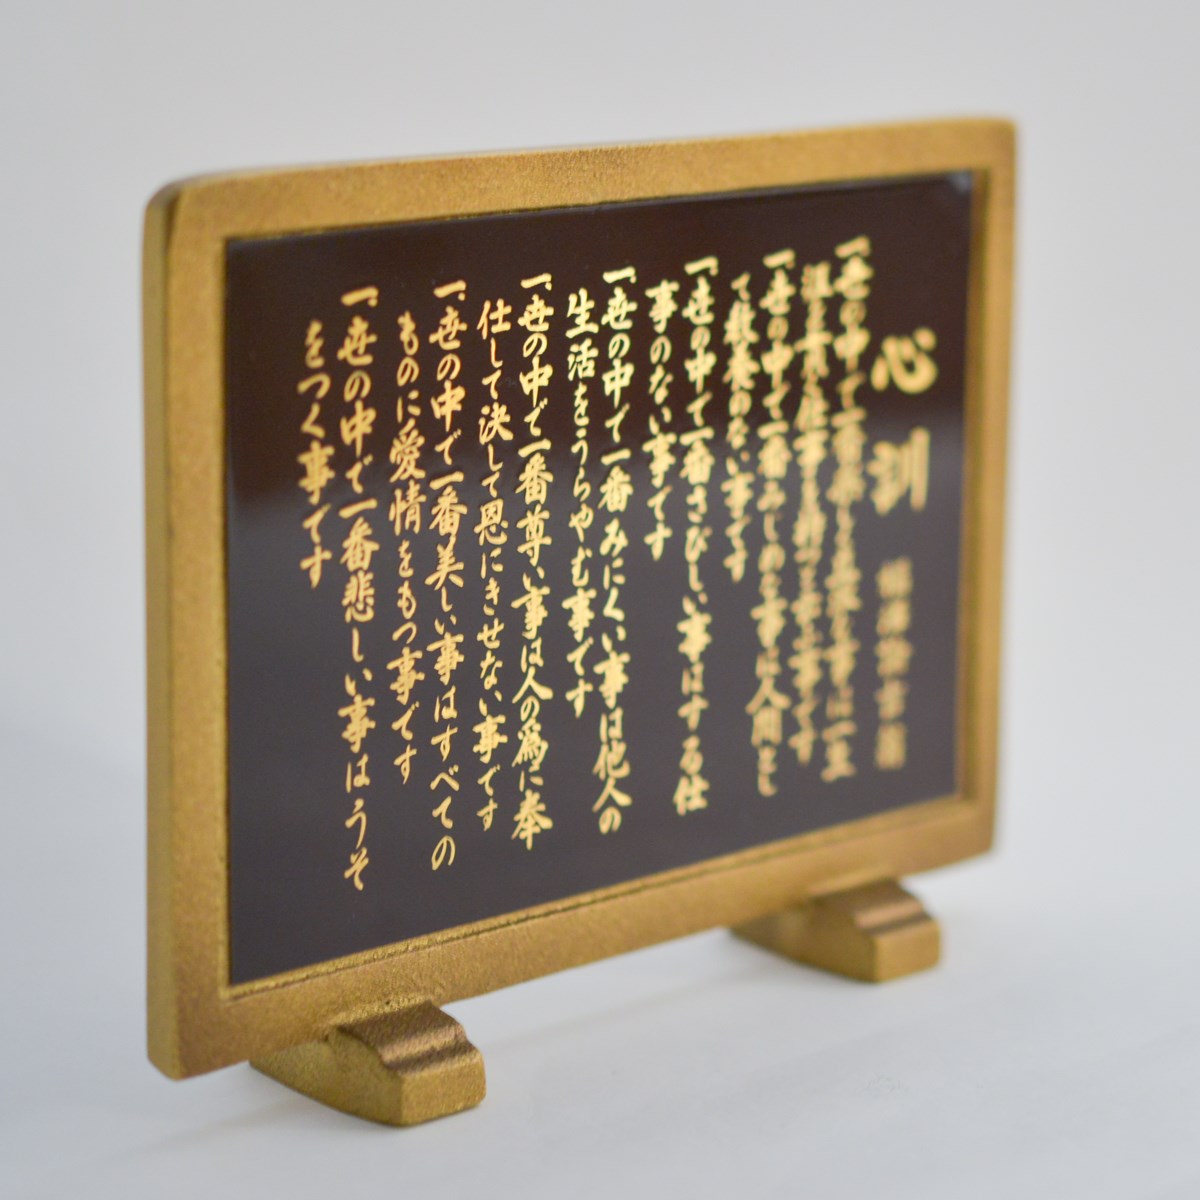 心訓
福澤諭吉翁
一、世の中で一番楽しく立派な事は一生
涯を貫く仕事を持つという事です
一、世の中で一番みじめな事は人間とし
て教養のない事です
一、世の中で一番さびしい事はする仕
事のない事です
一、世の中で一番みにくい事は他人の
生活をうらやむ事です
一、世の中で一番尊い事は人の為に奉
仕して決して恩にきせない事です
一、世の中で一番美しい事はすべての
ものに愛情をもつ事です
一、世の中で一番悲しい事はうそ
をつく事です